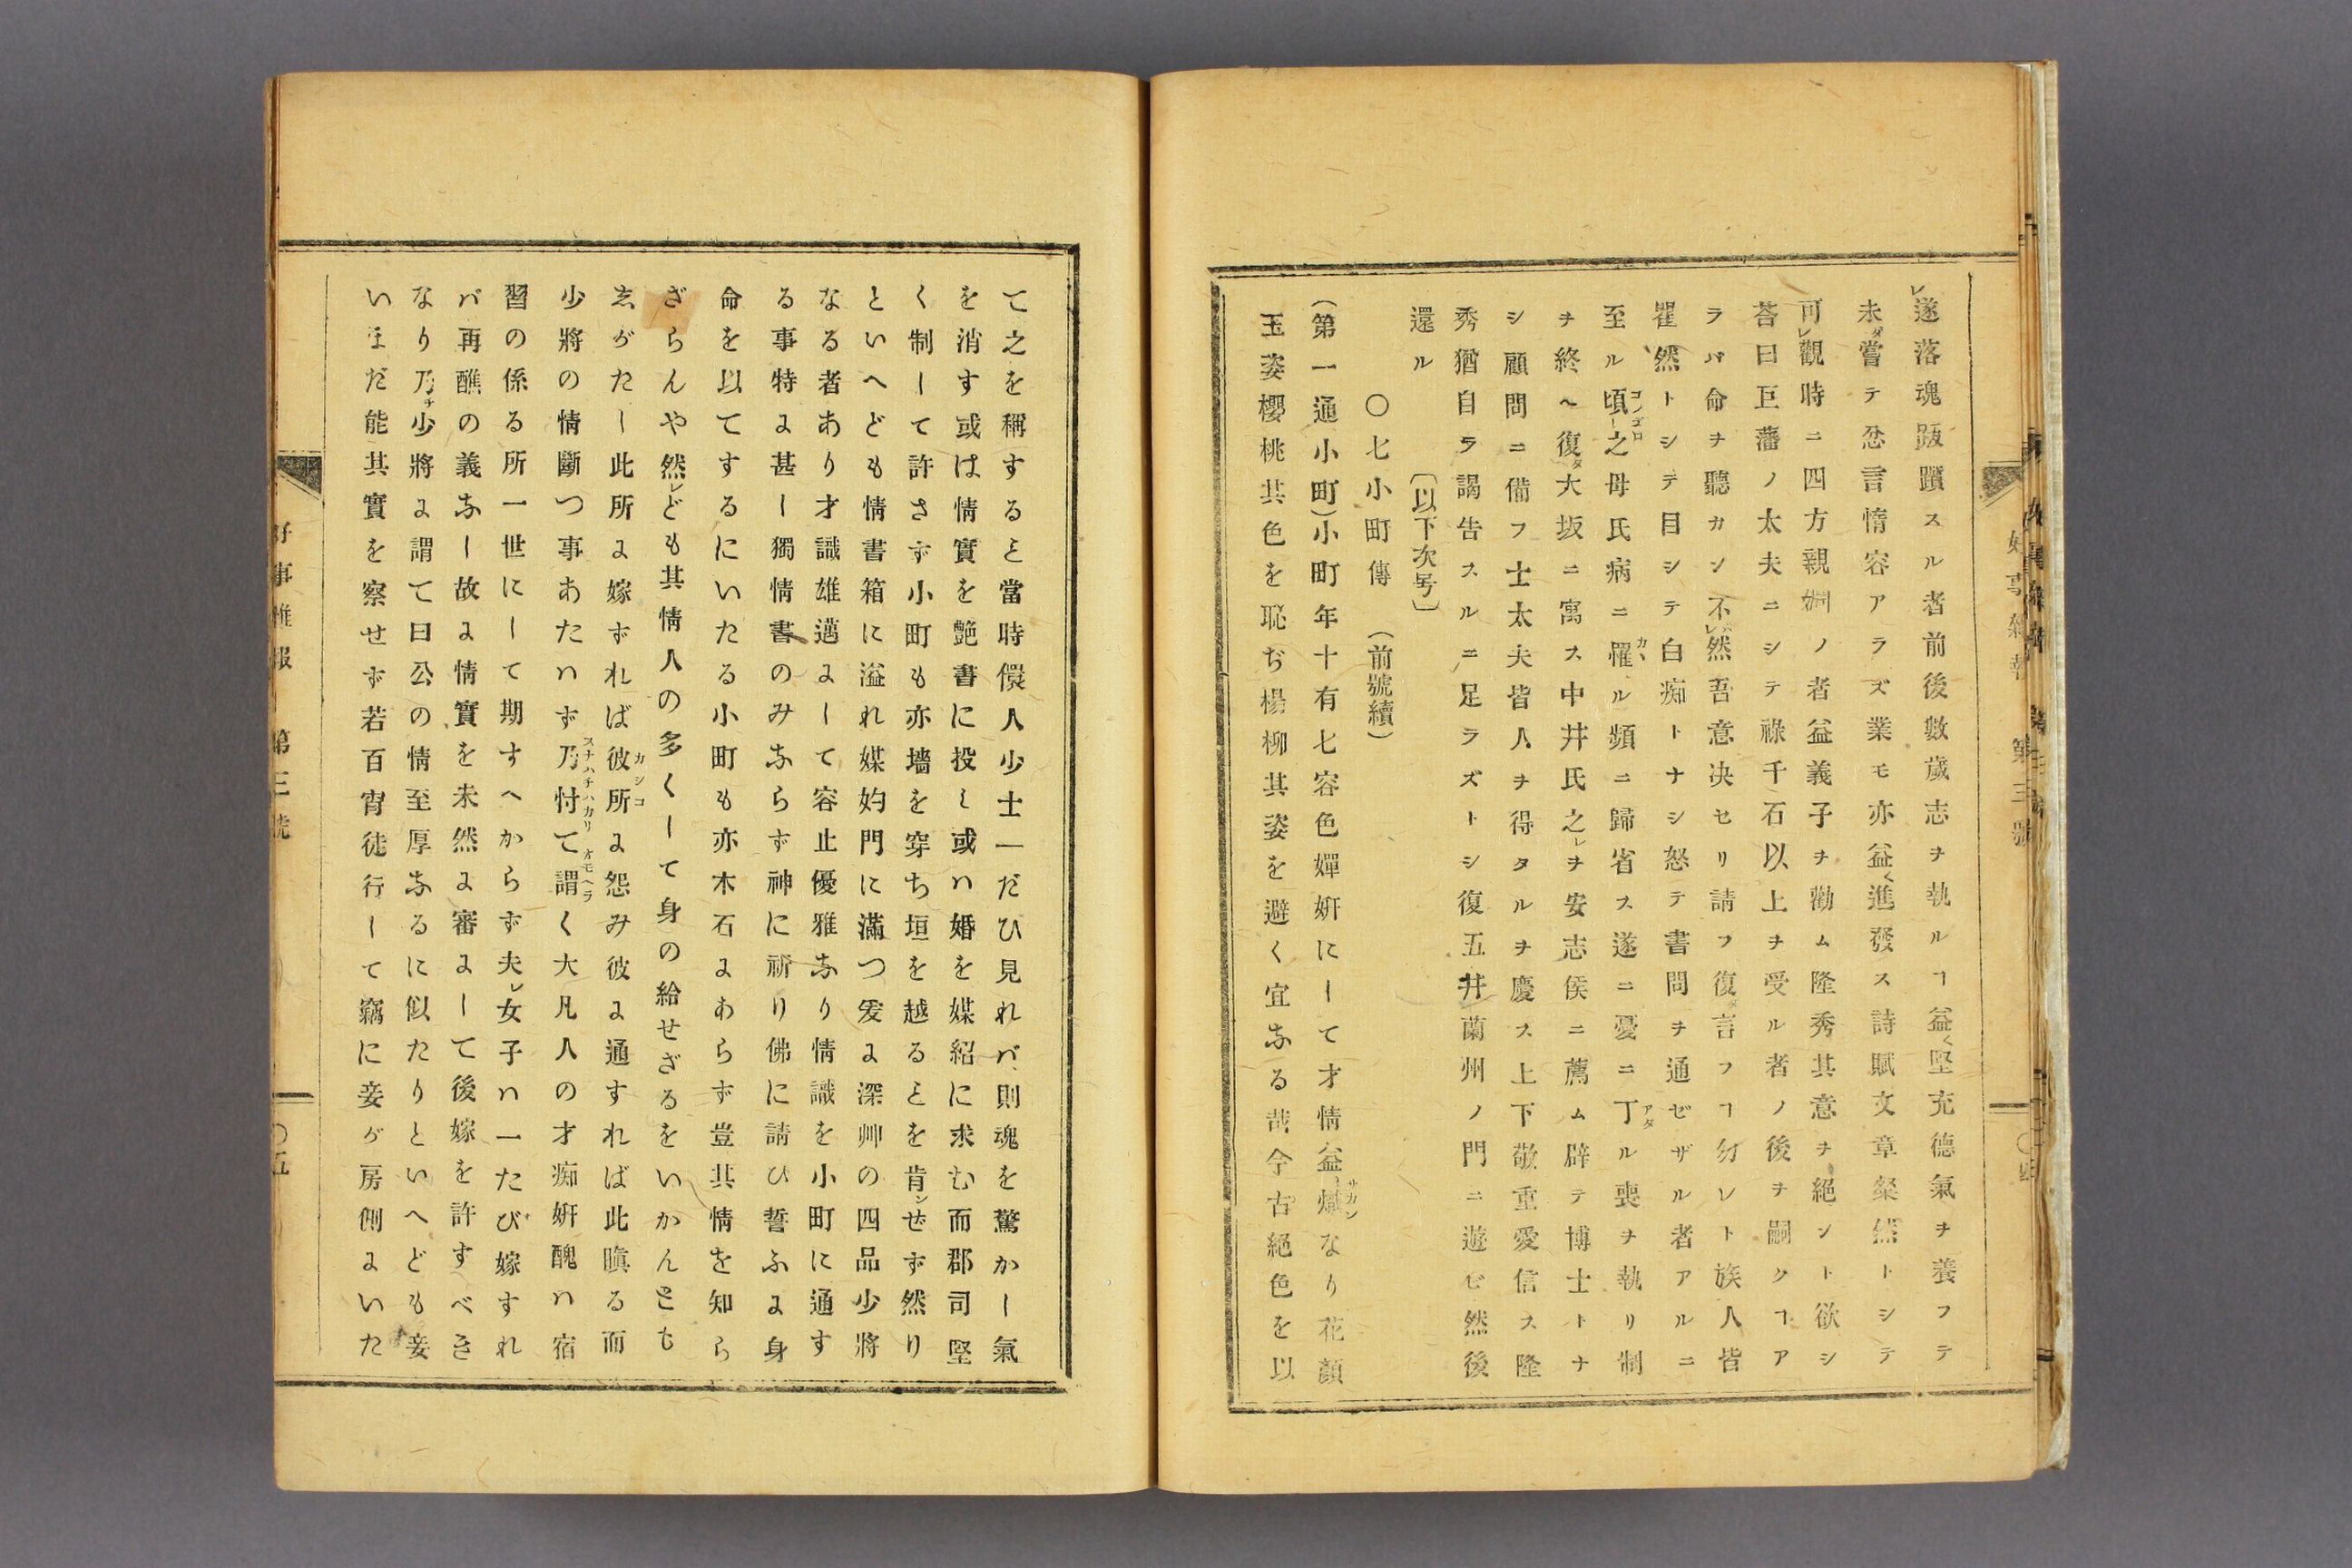 遂落魂跋躓スル者前後數歲志ヲ執ルヿ益〻堅充德氣ヲ養フテ
未ダ嘗テ忿言惰容アラズ業モ亦益〻進發ス詩賦文章粲然トシテ
可レ觀時ニ四方親ノ者益義子ヲ勸ム隆秀其意ヲ絕ント欲シ
答曰巨藩ノ太夫ニシテ祿千石以上ヲ受ル者ノ後ヲ嗣クヿア
ラバ命ヲ聽カン不レ然吾意决セリ請フ復言フヿ勿レト族人皆
瞿然トシテ目シテ白痴トナシ怒テ書問ヲ通ゼザル者アルニ
至ル頃之母氏病ニ罹ル頻ニ歸省ス遂ニ憂ニ丁ル喪ヲ執リ制
ヲ終ヘ復タ大坂ニ寓ス中井氏之レヲ安志侯ニ薦ム辟テ博士トナ
シ顧問ニ備フ士太夫皆人ヲ得タルヲ慶ス上下敬重愛信ス隆
秀猶自ラ謁告スルニ足ラズトシ復五井蘭州ノ門ニ遊ビ然後
還ル 〔以下次号〕
〇七小町傳 (前號續)
(第一通小町)小町年十有七容色嬋妍にして才情益熾なり花顏
玉姿櫻桃其色を恥ぢ楊柳其姿を避く宜なる哉今古絕色を以
て之を稱すると當時儇人少士一だひ見れバ則魂を驚かし氣
を消す或は情實を艶書に投し或ハ婚を媒紹に求む而郡司堅
く制して許さず小町も亦墻を穿ち垣を越るとを肯ンぜず然り
といへども情書箱に溢れ媒妁門に滿つ爰に深艸の四品少將
なる者あり才識雄邁にして容止優雅なり情識を小町に通す
る事特に甚し獨情書のみならず神に祈り佛に請ひ誓ふに身
命を以てするにいたる小町も亦木石にあらず豈其情を知ら
ざらんや然レども其情人の多くして身の給せざるをいかんとも
志がたし此所に嫁ずれば彼所に怨み彼に通すれば此瞋る而
少將の情斷つ事あたハず乃忖て謂く大凡人の才痴妍醜ハ宿
習の係る所一世にして期すへからず夫レ女子ハ一たび嫁すれ
バ再醮の義なし故に情實を未然に審にして後嫁を許すべき
なり乃チ少將に謂て曰公の情至厚なるに似たりといへども妾
いまだ能其實を察せず若百宵徒行して竊に妾が房側にいた
好事雜報 第三號 〇五